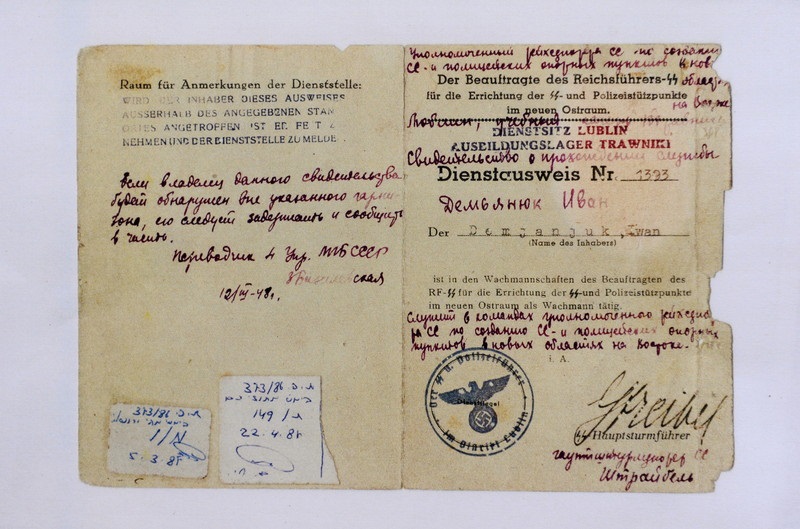 Raum für Anmerkungen der Dienststelle:
WIRD DER INHABER DIESES AUSWEISES
AUSSERHALB DES ANGEGEBENEN STAN
ORTES ANGETROFFEN IST ER FE T Z
NEHMEN UND DER DIENSTSTELLE ZU MELDE
Если владелец данного свидетельства
будет обнаружен вне указанного гарни-
зона, его следует задержать и сообщить
в часть.
Переводчик 4 Упр. МГБ СССР
12/III-48г.
373/86 ת.פ
1/ת
5.3.87
373/86 ת.פ
149/ת
22.4.87
Уполномоченный рейхсфюрера СС по созданию
СС- и полицейских опорных пунктов в нов.
областях
на Востоке
Der Beauftragte des Reichsführers-SS
für die Errichtung der SS- und Polizeistützpunkte
im neuen Ostraum.
Люблин, учебный
DIENSTSITZ LUBLIN
AUSBILDUNGSLAGER TRAWNIKI
Свидетельство о прохождении службы
Dienstausweis Nr. 1393
Демьянюк Иван
Der Demjanjuk, Iwan
(Name des Inhabers)
ist in den Wachmannschaften des Beauftragten des
RF-SS für die Errichtung der SS- und Polizeistützpunkte
im neuen Ostraum als Wachmann tätig.
Служит в командах уполномоченного рейхсфю
ра СС по созданию СС- и полицейских опорных
пунктов в новых областях на Востоке.
i. A.
Der SS u. Polizeiführer
im Distrikt Lublin
Streibel
SS Hauptsturmführer
гауптштурмфюрер СС
Штрайбель